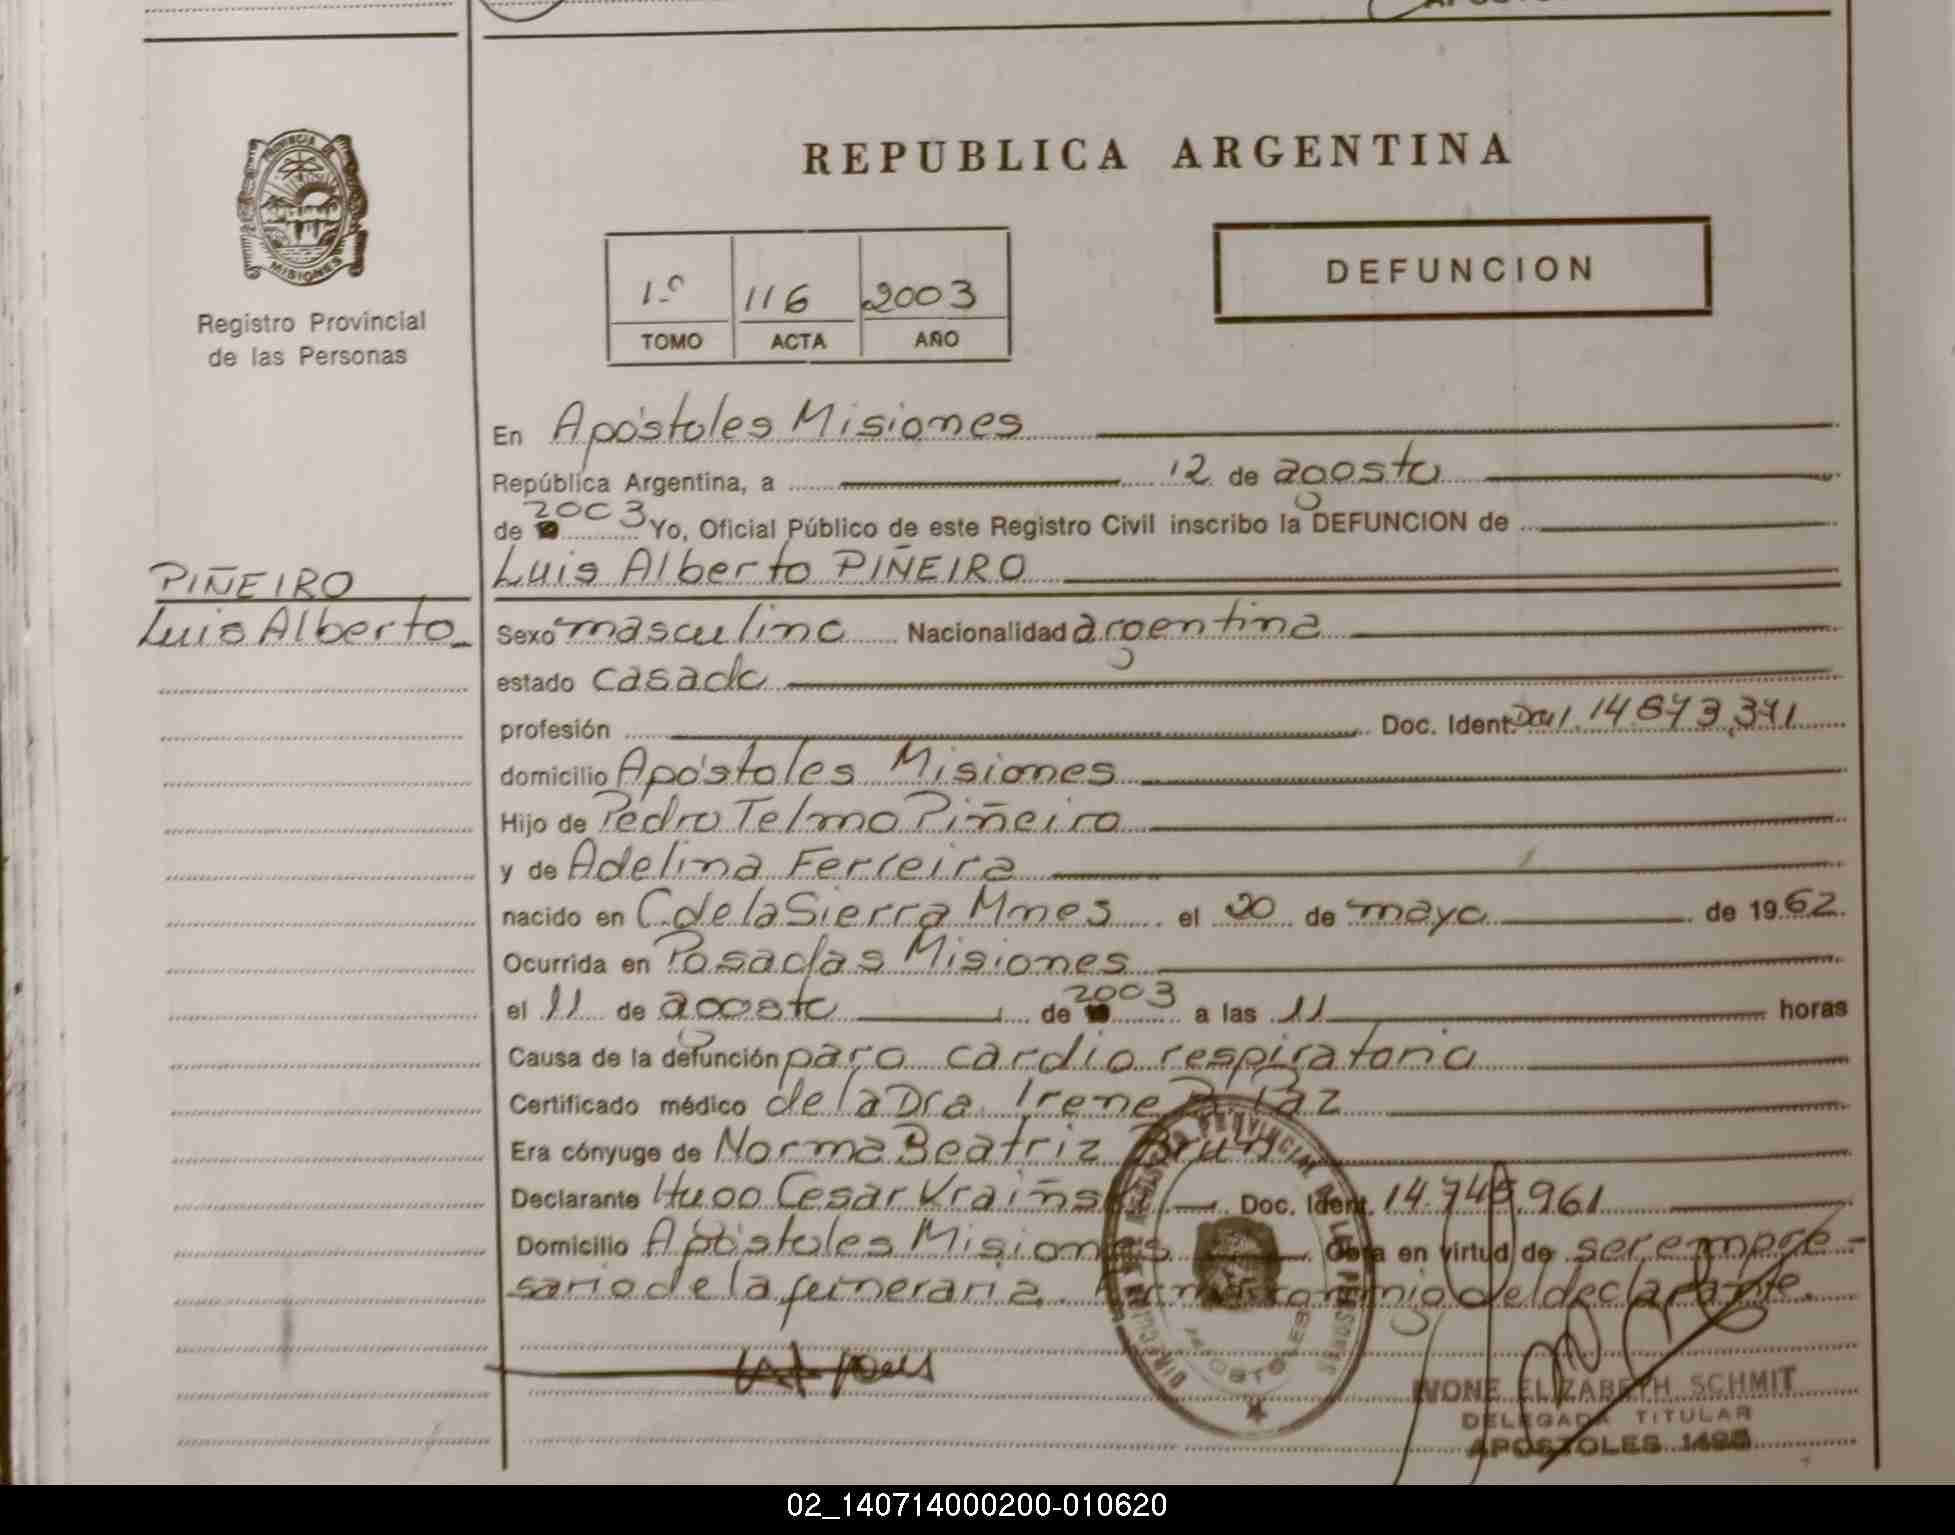 REPUBLICA ARGENTINA
PROVINCIA DE
MISIONES
Registro Provincial
de las Personas
1º 116 2003
TOMO ACTA AÑO
DEFUNCION
En Apóstoles Misiones
República Argentina, a 12 de agosto
de 2003 Yo, Oficial Público de este Registro Civil inscribo la DEFUNCION de
Luis Alberto PIÑEIRO
PIÑEIRO
Luis Alberto
Sexo masculino Nacionalidad argentina
estado casado
profesión Doc. Ident. 14.873.371
domicilio Apóstoles Misiones
Hijo de Pedro Telmo Piñeiro
y de Adelina Ferreira
nacido en C. de la Sierra Mnes el 20 de mayo de 1962
Ocurrida en Posadas Misiones
el 11 de agosto de 2003 a las 11 horas
Causa de la defunción paro cardio respiratorio
Certificado médico de la Dra. Irene Paz
Era cónyuge de Norma Beatriz Brun
Declarante Hugo Cesar Doc. Ident. 14.745.961
Domicilio Apóstoles Misiones Obra en virtud de ser empre-
sario de la funeraria. Firma conmigo el declarante.
IVONE ELIZABETH SCHMIT
DELEGADA TITULAR
APOSTOLES
02_140714000200-010620